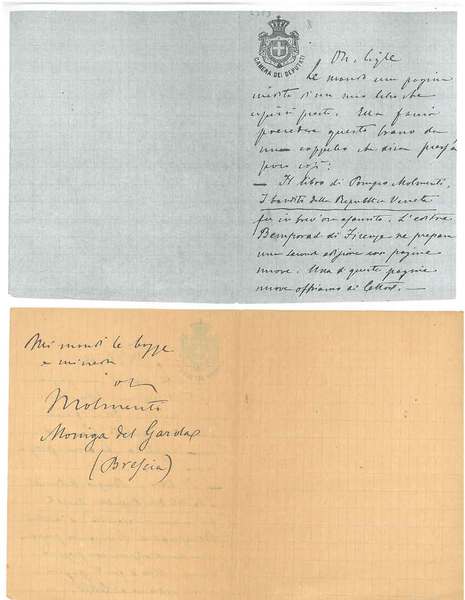 CAMERA DEI DEPUTATI
Le mando una pagina
inedita di un mio libro che
uscirà presto. Ella farà
precedere questo brano da
un cappello che dica
poco così:
— Il libro di Pompeo Molmenti,
I banditi della Repubblica Veneta
fu in brev'ora esaurito. L'editore
Bemporad di Firenze ne prepara
una seconda edizione con pagine
nuove. Una di queste pagine
nuove offriamo ai lettori. —
Mi mandi le bozze
e mi creda
Molmenti
Moniga del Garda
(Brescia)